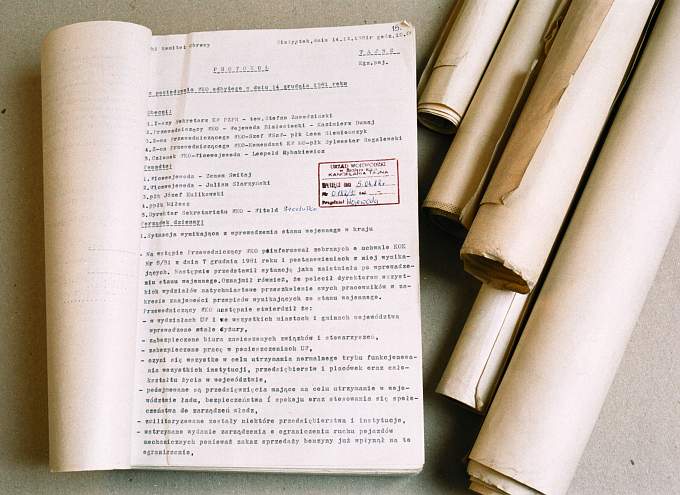 15.
ki Komitet Obrony
Białystok, dnia 14.12.1981r godz.10.
T A J N E
Egz.poj.
P R O T O K Ó Ł
z posiedzenia WKO odbytego w dniu 14 grudnia 1981 roku
Obecni:
1.I-szy Sekretarz KW PZPR - tow.Stefan Zawodziński
2.Przewodniczący WKO - Wojewoda Białostocki - Kazimierz Dunaj
3.Z-ca Przewodniczącego WKO-Szef WSzW- płk Leon
4.Z-ca Przewodniczącego WKO-Komendant KW MO-płk Sylwester Rogalewski
5.Członek WKO-Wicewojewoda - Leopold Rybakiewicz
Ponadto:
1.Wicewojewoda - Zenon Świtaj
2.Wicewojewoda - Julian Starzyński
3.płk Józef Kulikowski
4.ppłk Miłosz
5.Dyrektor Sekretariatu WKO - Witold
URZĄD WOJEWÓDZKI
w Białymstoku
KANCELARIA TAJNA
Wojewoda
Porządek dzienny:
1.Sytuacja wynikająca z wprowadzenia stanu wojennego w kraju
- Na wstępie Przewodniczący WKO poinformował zebranych o uchwale KOK
Nr 8/81 z dn 7 grudnia 1981 roku i postanowieniach z niej wynika-
jących. Następnie przedstawił sytuację jaka zaistniała po wprowadze-
niu stanu wojennego.Oznajmił również, że polecił dyrektorom wszyst-
kich wydziałów natychmiastowe przeszkolenie swych pracowników w za-
kresie znajomości przepisów wynikających ze stanu wojennego.
Przewodniczący WKO następnie stwierdził że:
- w wydziałach UW i we wszystkich miastach i gminach województwa
wprowadzono stałe dyżury,
- zabezpieczono biura zawieszonych związków i stowarzyszeń,
- zabezpieczono pracę w pomieszczeniach UW,
- czyni się wszystko w celu utrzymania normalnego trybu funkcjonowa-
nia wszystkich instytucji, przedsiębiorstw i placówek oraz cało-
kształtu życia w województwie,
- podejmowane są przedsięwzięcia mające na celu utrzymanie w woje-
wództwie ładu, bezpieczeństwa i spokoju oraz stosowania się społe-
czeństwa do zarządzeń władz,
- zmilitaryzowane zostały niektóre przedsiębiorstwa i instytucje,
- wstrzymano wydanie zarządzenia o ograniczeniu ruchu pojazdów
mechanicznych ponieważ zakaz sprzedaży benzyny już wpłynął na to
ograniczenie,